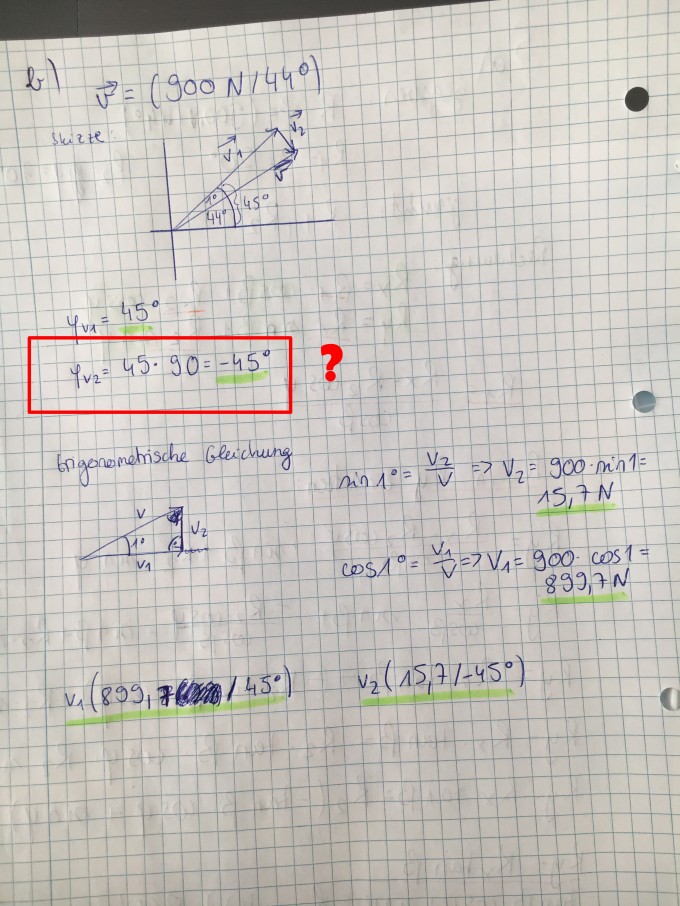 b) v = (900 N / 44°)
Skizze:
v1
v2
v
1°
44°
45°
φv1 = 45°
φv2 = 45 · 90 = -45°
?
trigonometrische Gleichung
sin 1° = v2/v => v2 = 900 · sin 1 =
15,7 N
v
1°
v2
v1
cos 1° = v1/v => v1 = 900 · cos 1 =
899,7 N
v1 (899,7 / 45°)
v2 (15,7 / -45°)